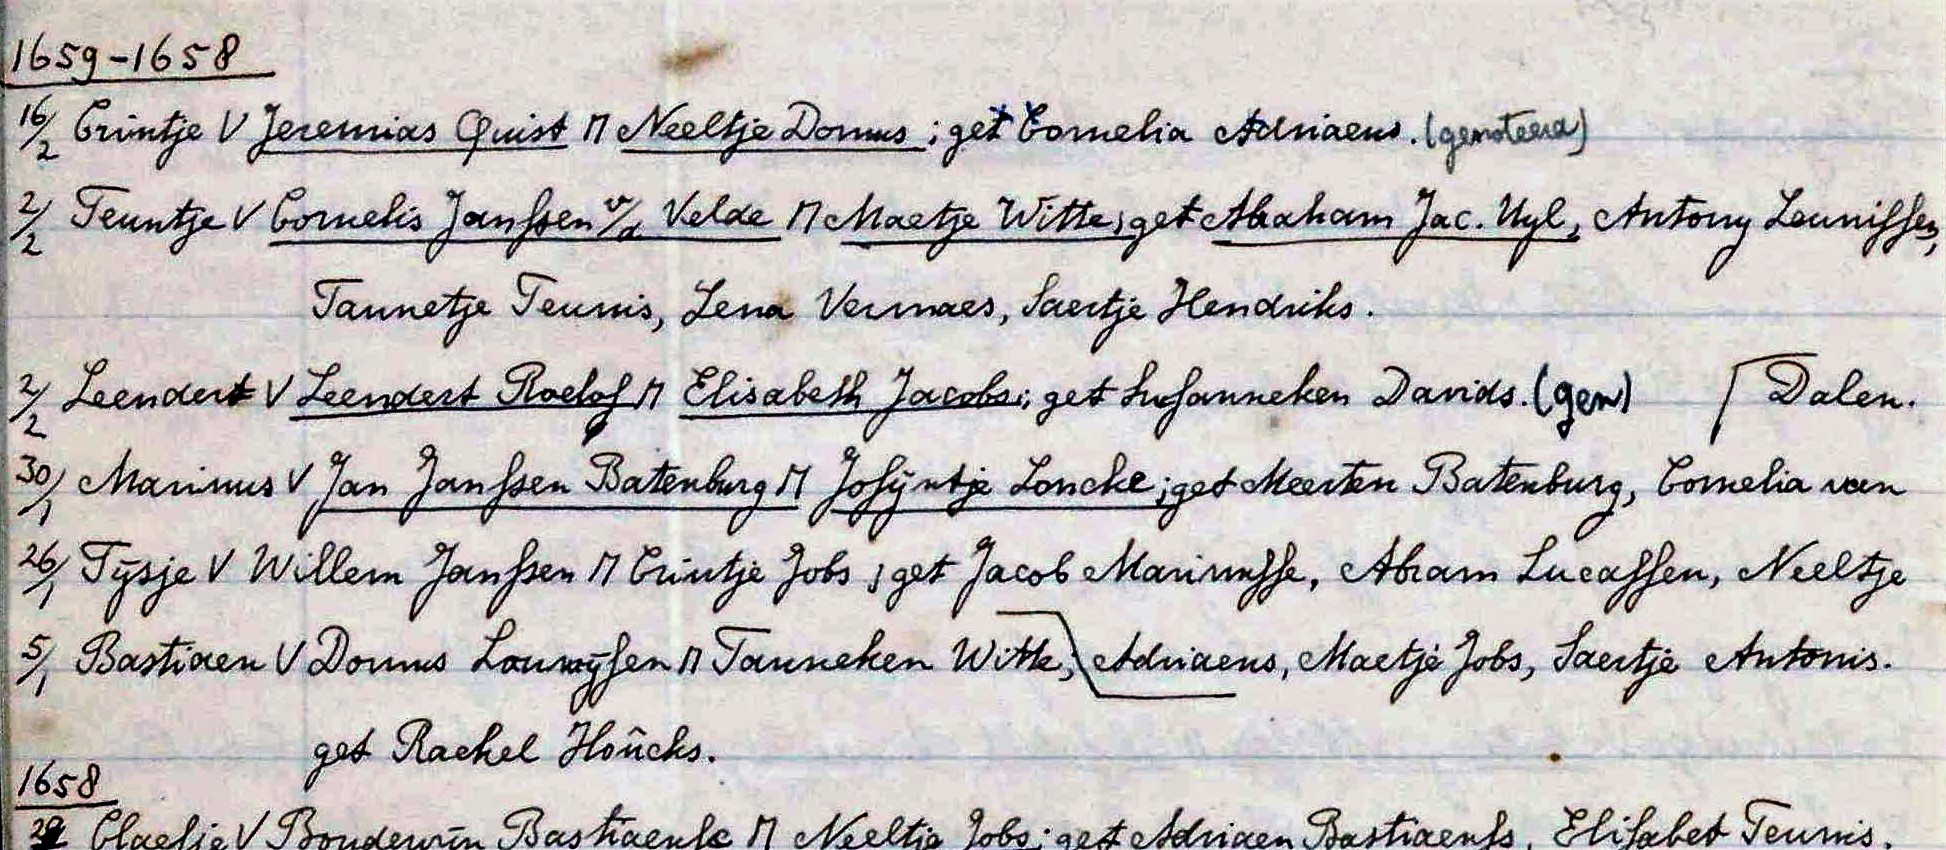 1659-1658
16/2 Crintje V Jeremias Quist M Neeltje Domus; get Cornelia Adriaens. (genoteerd)
2/2 Teuntje V Cornelis Janssen v/d Velde M Maetje Witte; get Abraham Jac. Uyl, Antony Leunissen,
Tannetje Teunis, Lena Vermaes, Saertje Hendriks.
2/2 Leendert V Leendert Roelof M Elisabeth Jacobs; get Susanneken Davids. (gen) Dalen.
30/1 Marinus V Jan Janssen Batenburg M Josijntje Loncke; get Meerten Batenburg, Cornelia van
26/1 Tijsje V Willem Janssen M Crintje Jobs; get Jacob Marinusse, Abram Lucassen, Neeltje
5/1 Bastiaen V Domus Lourijssen M Tanneken Witte; Adriaens, Maetje Jobs, Saertje Antonis.
get Rachel Hoûcks.
1658
29 Claesje V Boudewijn Bastiaense M Neeltje Jobs; get Adriaen Bastiaenss, Elisabet Teunis.